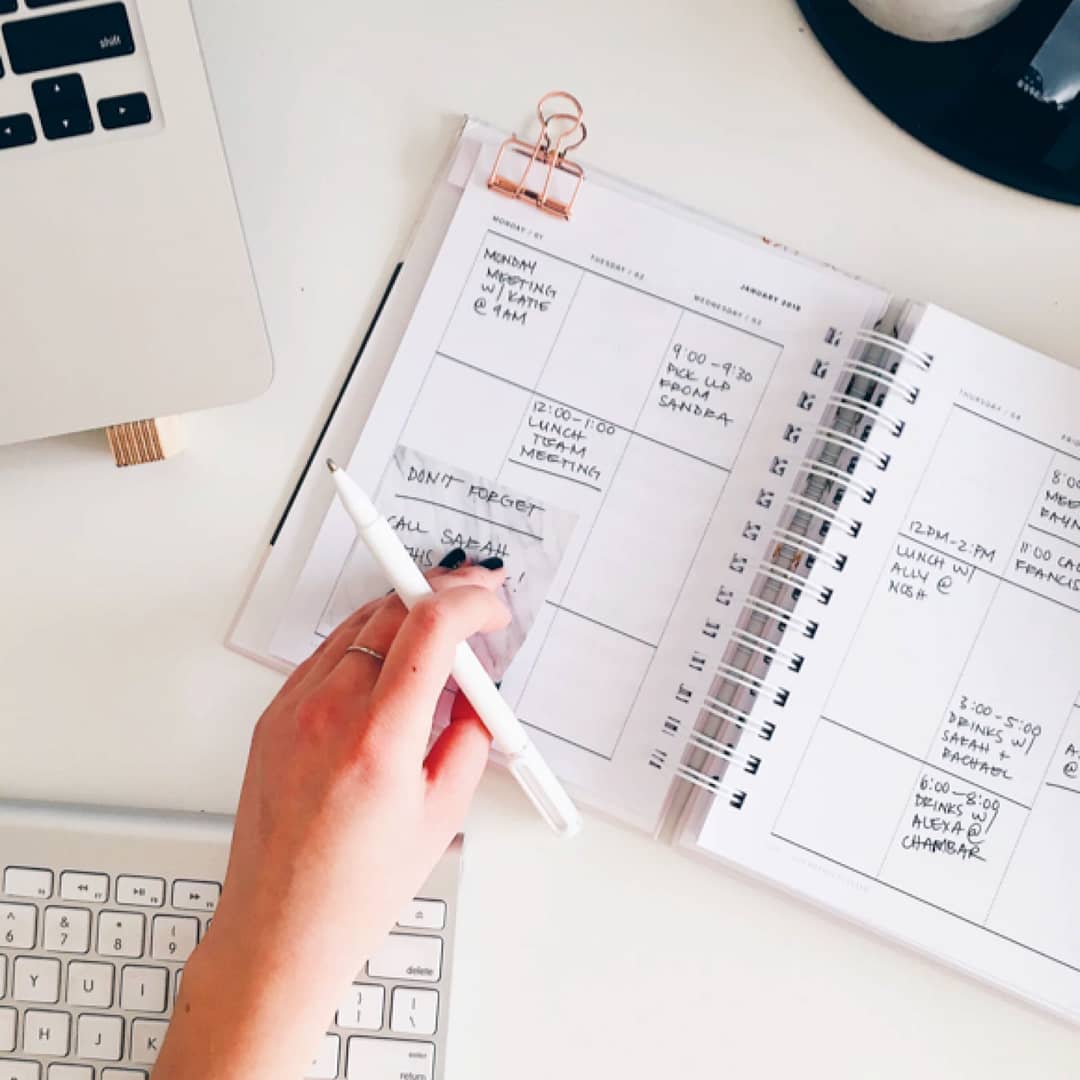 shift
MONDAY / 01
TUESDAY / 02
JANUARY 2018
WEDNESDAY / 03
MONDAY
MEETING
W/ KATIE
@ 9AM
9:00-9:30
PICK UP
FROM
SANDRA
12:00-1:00
LUNCH
TEAM
MEETING
DON'T FORGET
CALL SARAH
THURSDAY / 04
12PM-2:PM
LUNCH W/
ALLY @
NOSH
8:00
11:00
FRANCIS
3:00-5:00
DRINKS W/
SARAH +
RACHAEL
6:00-8:00
DRINKS W/
ALEXA @
CHAMBAR
F7
^ & * (
6 7 8 9
delete
Y U I
} |
] \
H J K
enter
return